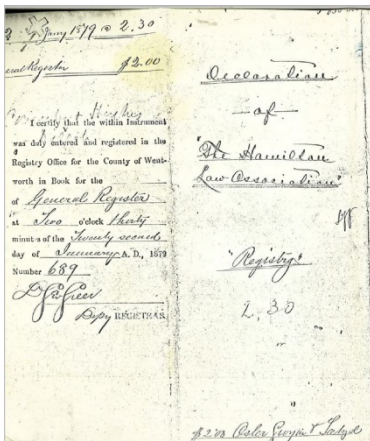 Jany 1879 @ 2.30
General Register $2.00
I certify that the within Instrument
was duly entered and registered in the
Registry Office for the County of Went-
worth in Book for the
of General Register
at Two o'clock thirty
minutes of the Twenty second
day of January A. D., 1879
Number 689
Depy REGISTRAR
Declaration
of
"The Hamilton
Law Association"
"Registry"
2.30
$2.00 Osler Gwyn &